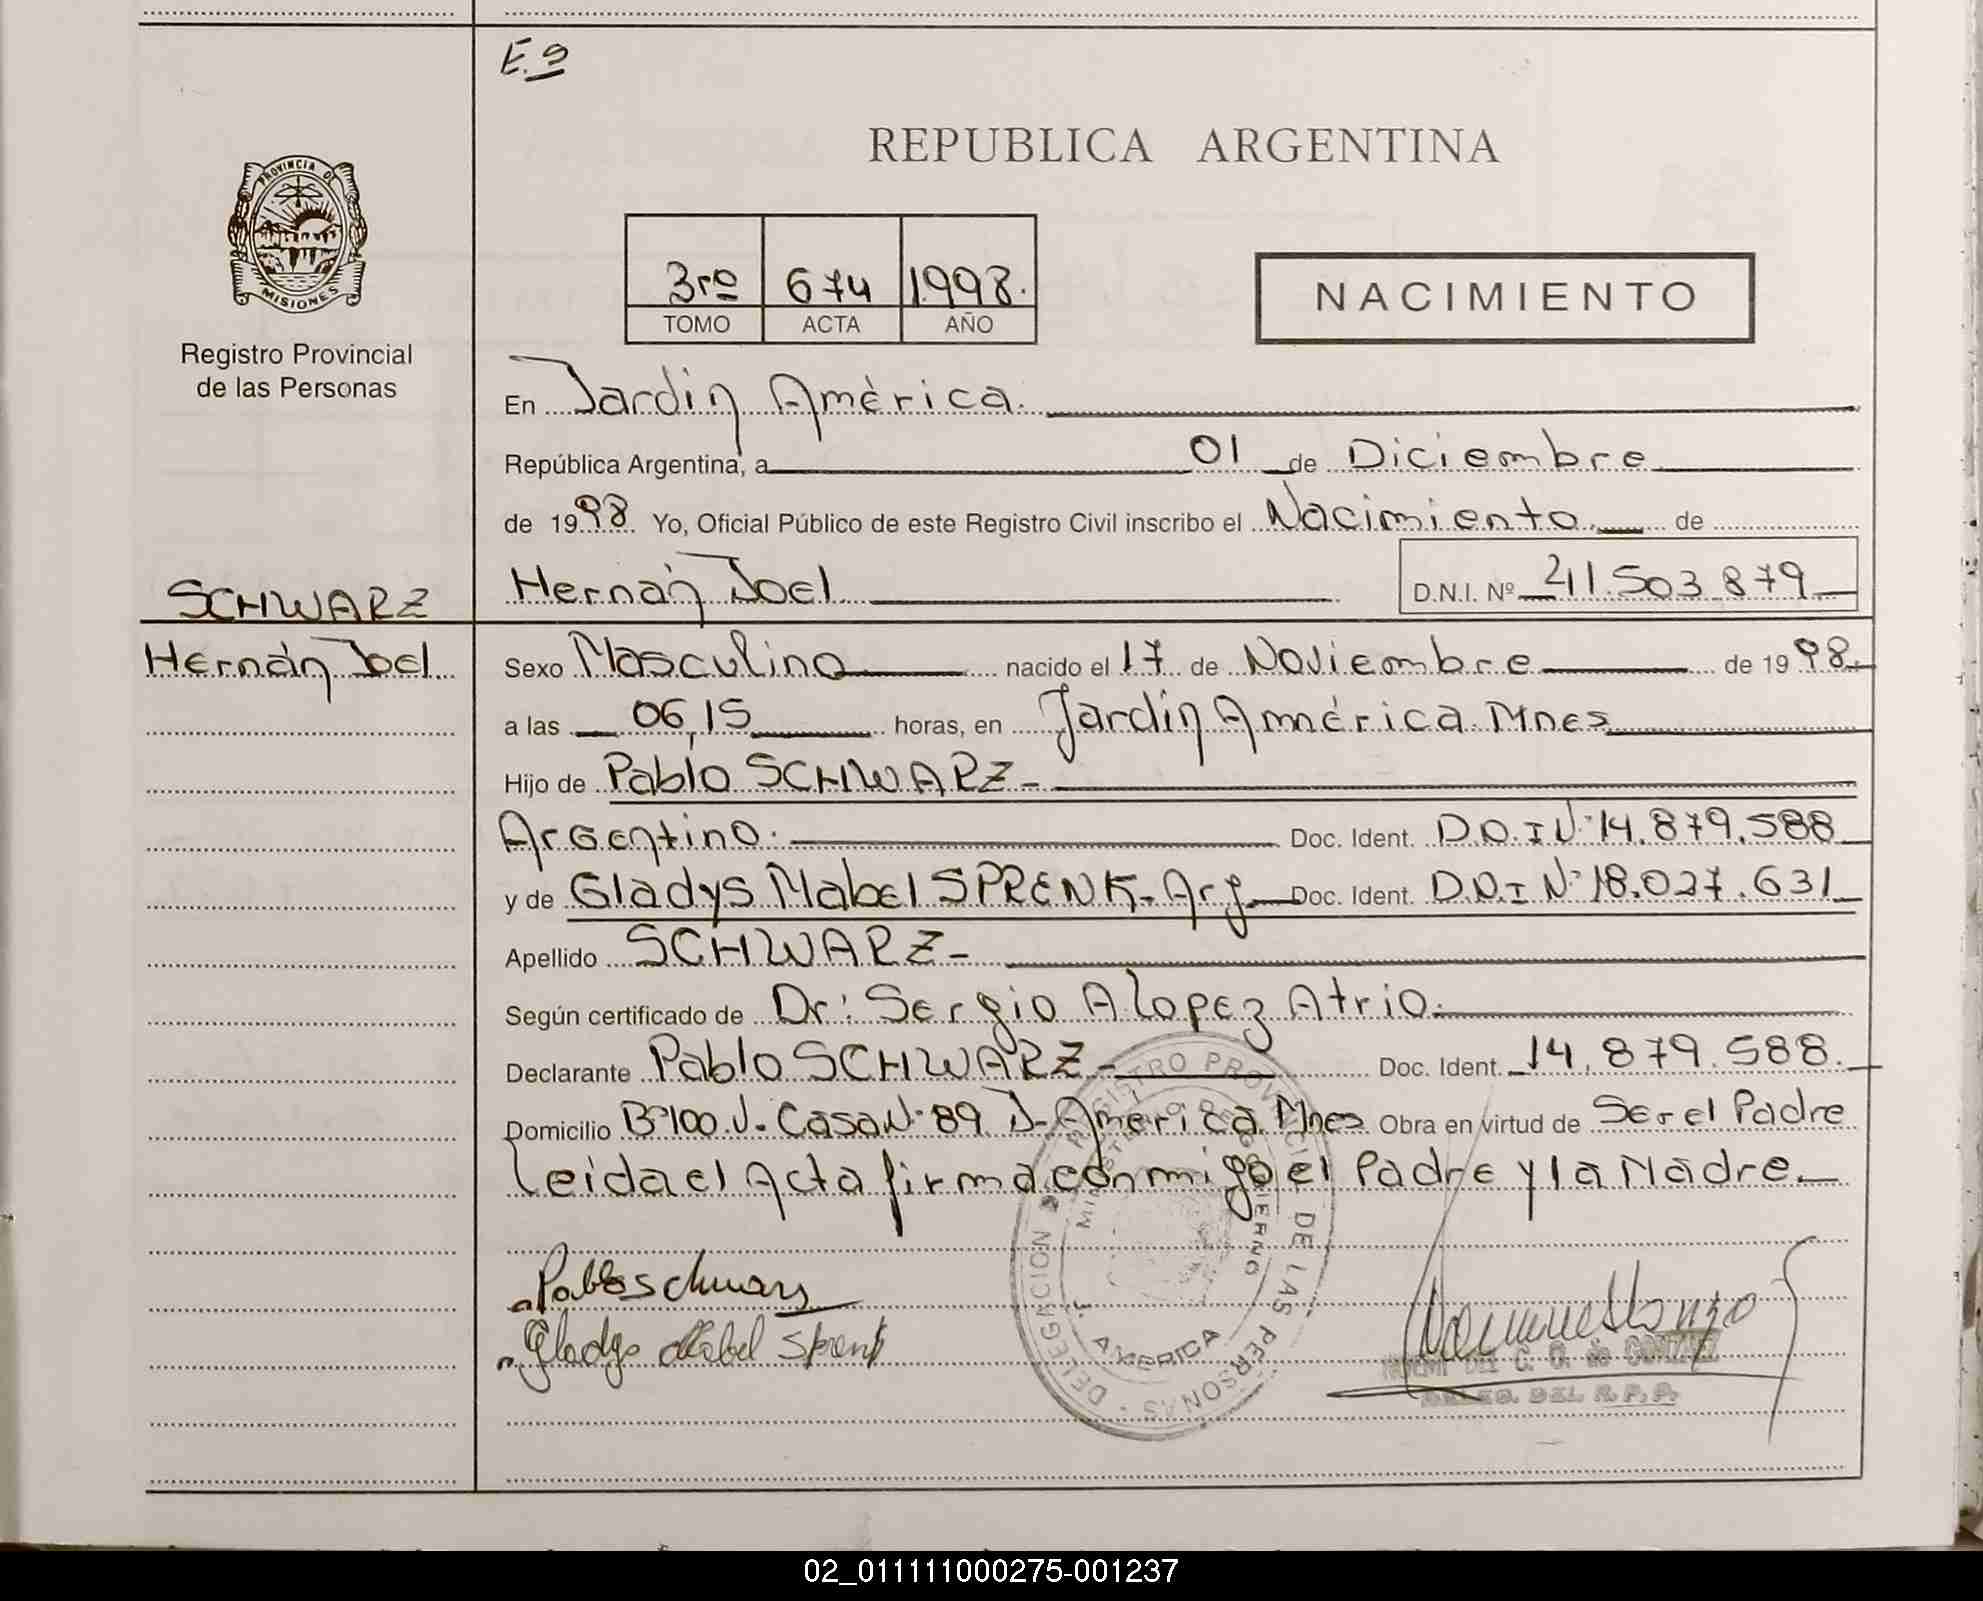 E.9
REPUBLICA ARGENTINA
PROVINCIA DE
MISIONES
3ro 674 1998.
TOMO ACTA AÑO
NACIMIENTO
Registro Provincial
de las Personas
En Jardín América.
República Argentina, a 01 de Diciembre
de 1998. Yo, Oficial Público de este Registro Civil inscribo el Nacimiento de
SCHWARZ
Hernán Joel D.N.I. Nº 41.503.879
Hernán Joel
Sexo Masculino nacido el 17 de Noviembre de 1998.
a las 06,15 horas, en Jardín América Mnes
Hijo de Pablo SCHWARZ-
Argentino. Doc. Ident. D.N.I Nº 14.879.588
y de Gladys Mabel SPRENK-Arg. Doc. Ident. D.N.I Nº 18.027.631
Apellido SCHWARZ-
Según certificado de Dr: Sergio A Lopez Atrio.
Declarante Pablo SCHWARZ- Doc. Ident. 14.879.588.
Domicilio Bº100.V. Casa Nº 89 J. America Mnes Obra en virtud de Ser el Padre
Leida el Acta firma conmigo el Padre y la Madre
Pablo Schwarz
Gladys Mabel Sprenk
DELEGACION REGISTRO PROVINCIAL DE LAS PERSONAS
MINISTERIO DE GOBIERNO
J. AMERICA
C. G. de GONZALEZ
DEL R.P.P.
02_011111000275-001237